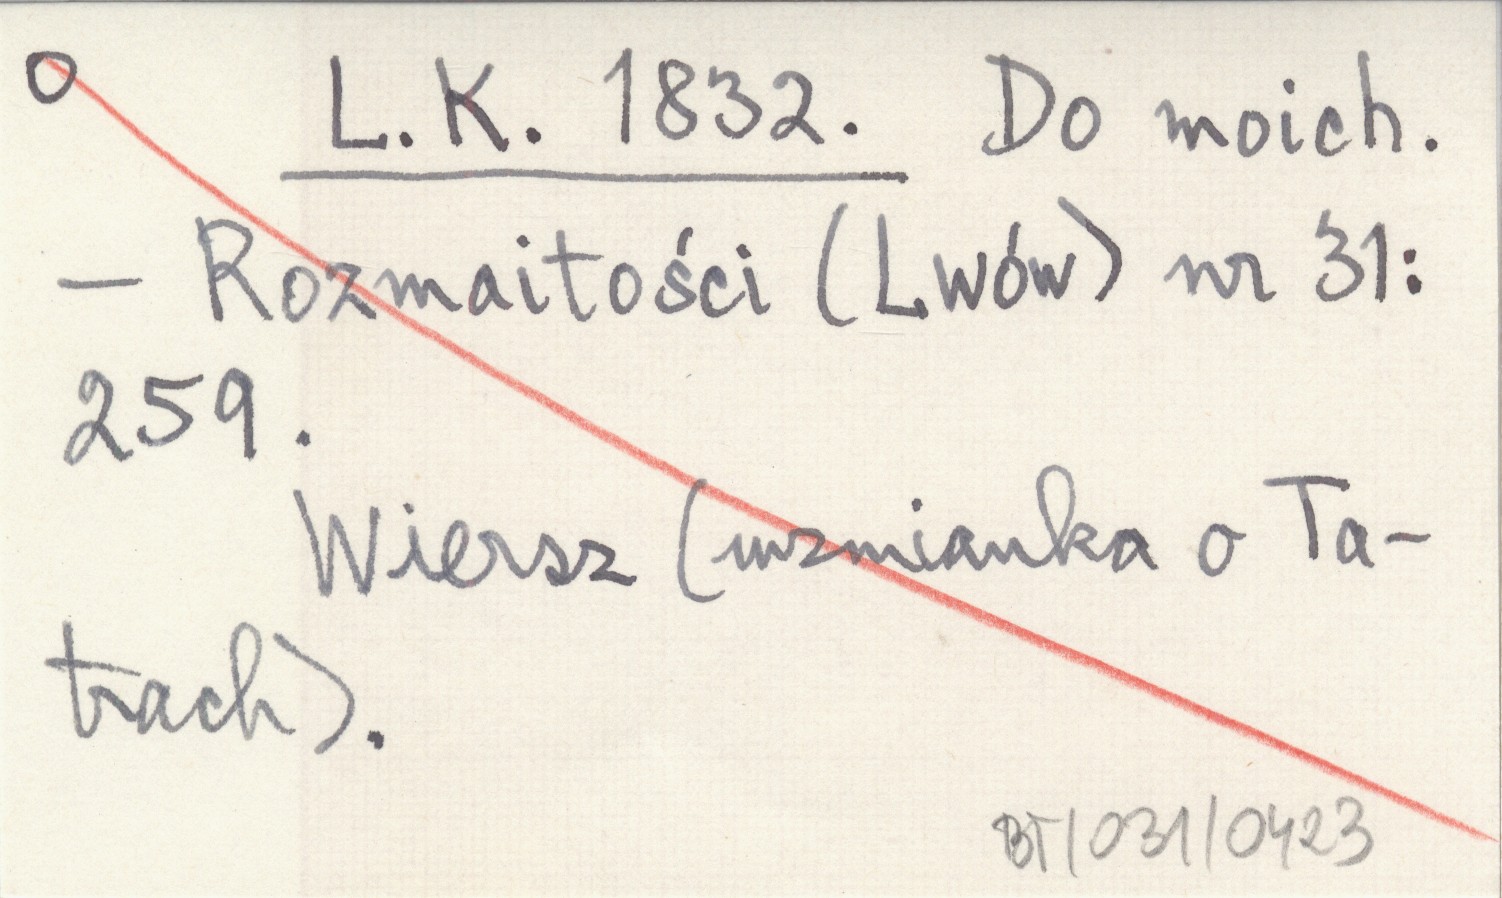 O L.K. 1832. Do moich.
— Rozmaitości (Lwów) nr 31:
259.
Wiersz (wzmianka o Ta-
trach).
BT/031/0423